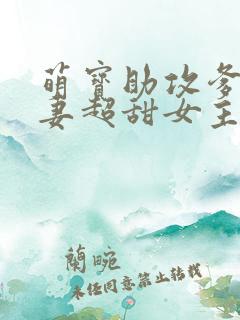 萌寶助攻爹
妻超甜女主
蘭晼
未經同意禁止轉載